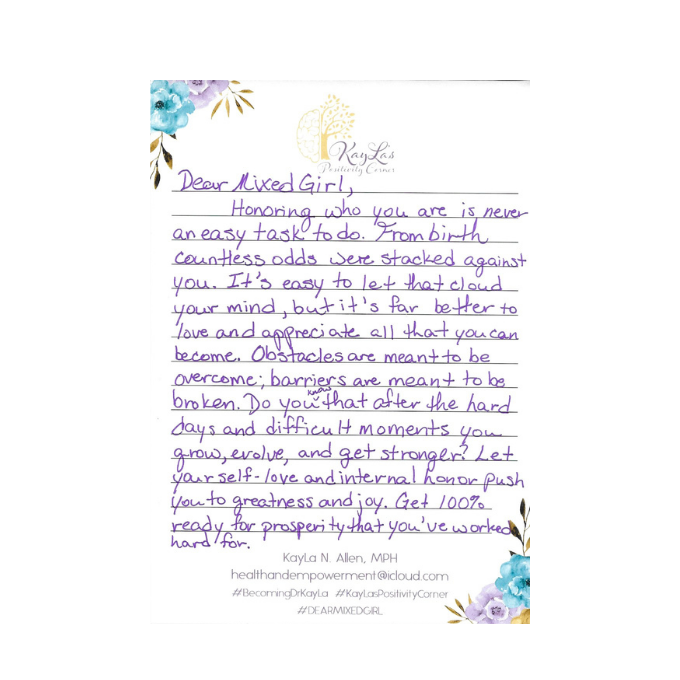 KayLa's
Positivity Corner
Dear Mixed Girl,
Honoring who you are is never
an easy task to do. From birth
countless odds were stacked against
you. It's easy to let that cloud
your mind, but it's far better to
love and appreciate all that you can
become. Obstacles are meant to be
overcome; barriers are meant to be
broken. Do you know that after the hard
days and difficult moments you
grow, evolve, and get stronger? Let
your self-love and internal honor push
you to greatness and joy. Get 100%
ready for prosperity that you've worked
hard for.
KayLa N. Allen, MPH
healthandempowerment@icloud.com
#BecomingDrKayLa #KayLasPositivityCorner
#DEARMIXEDGIRL